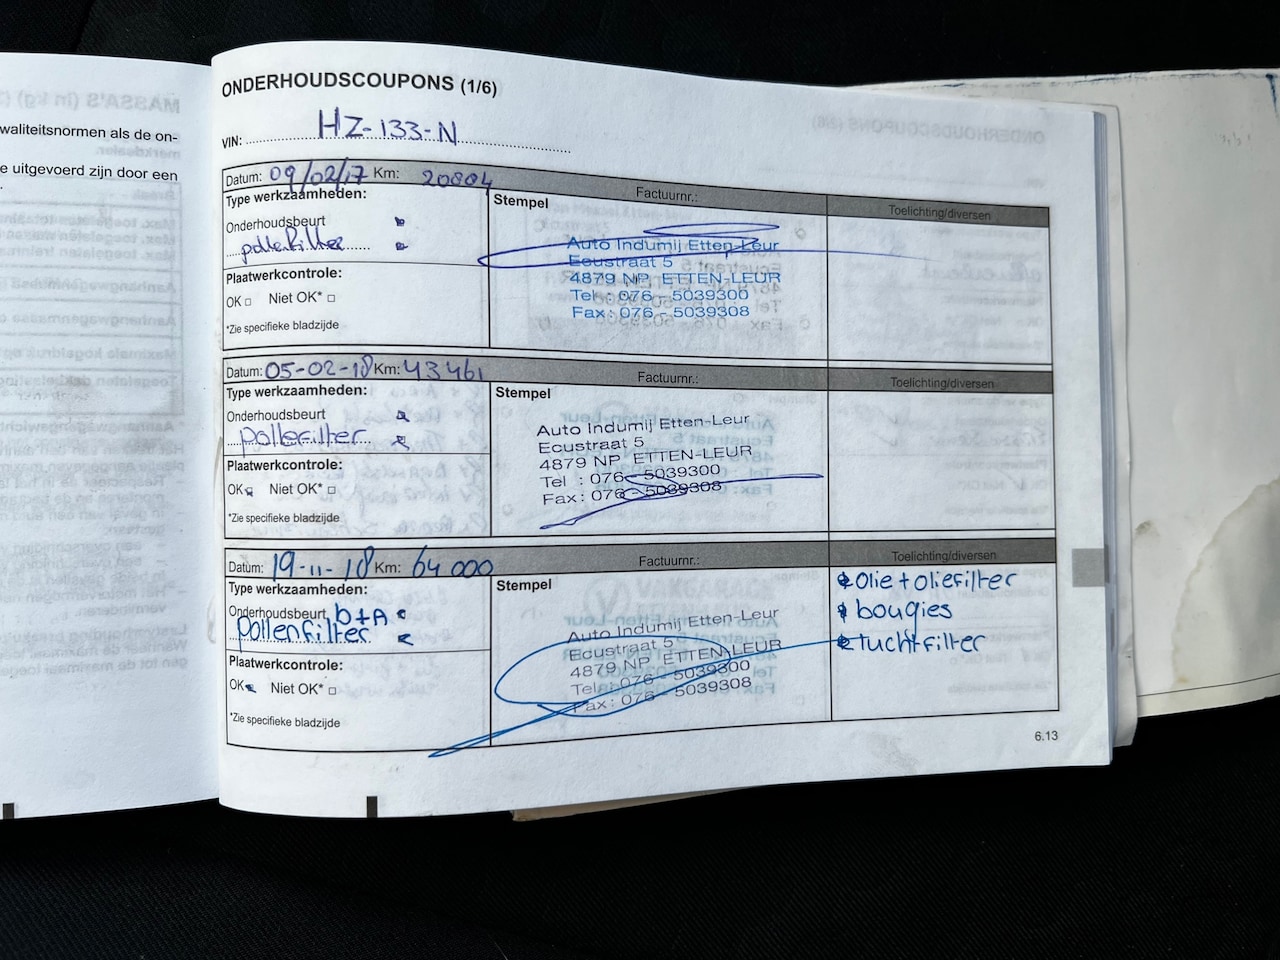 waliteitsnormen als de on-
e uitgevoerd zijn door een
ONDERHOUDSCOUPONS (1/6)
VIN: HZ-133-N
Datum: 09/02/17 Km: 20804
Factuurnr.:
Toelichting/diversen
Type werkzaamheden:
Stempel
Onderhoudsbeurt
pollenfilter
Plaatwerkcontrole:
OK □ Niet OK* □
*Zie specifieke bladzijde
Auto Indumij Etten-Leur
Ecustraat 5
4879 NP ETTEN-LEUR
Tel : 076 - 5039300
Fax : 076 - 5039308
Datum: 05-02-18 Km: 43461
Factuurnr.:
Toelichting/diversen
Type werkzaamheden:
Stempel
Onderhoudsbeurt
pollefilter
Plaatwerkcontrole:
OK Niet OK* □
*Zie specifieke bladzijde
Auto Indumij Etten-Leur
Ecustraat 5
4879 NP ETTEN-LEUR
Tel : 076 - 5039300
Fax : 076 - 5039308
Datum: 19-11-18 Km: 64000
Factuurnr.:
Toelichting/diversen
Type werkzaamheden:
Stempel
Onderhoudsbeurt b+A
pollenfilter
Plaatwerkcontrole:
OK Niet OK* □
*Zie specifieke bladzijde
Auto Indumij Etten-Leur
Ecustraat 5
4879 NP ETTEN-LEUR
Tel : 076 - 5039300
Fax : 076 - 5039308
olie + oliefilter
bougies
luchtfilter
6.13